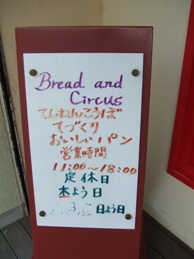 Bread and
Circus
てんねんこうぼ
てづくり
おいしいパン
営業時間
11:00〜18:00
定休日
木よう日
日よう日